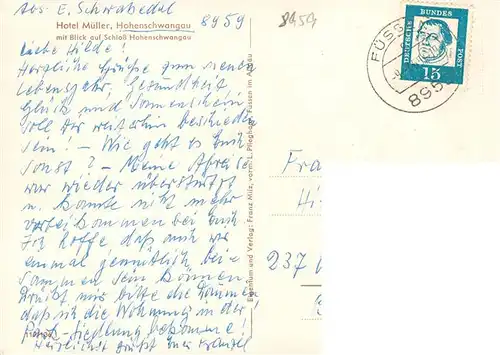 Abs. E. Schwabedal
Hotel Müller, Hohenschwangau
mit Blick auf Schloß Hohenschwangau
8959
8959
Liebe Hilde!
Herzliche Grüße zum neuen
Lebensjahr, Gesundheit
Glück und Sonnenschein
soll Dir weiterhin beschieden
sein! – Wie geht es Euch
sonst? – Meine Abreise
war wieder überstürzt
u. konnte nicht mehr
vorbeikommen bei Euch
Ich hoffe, daß auch wir
einmal gemütlich bei-
sammen sein können
Drückt mir bitte die Daumen
daß ich die Wohnung in der
Siedlung bekomme!
Herzlichst grüßt Euer
Eigentum und Verlag: Franz Milz, vorm. L. Plieghofer, Füssen im Allgäu
DEUTSCHE BUNDES POST
15
FÜSS
895
Fra
Hi
237